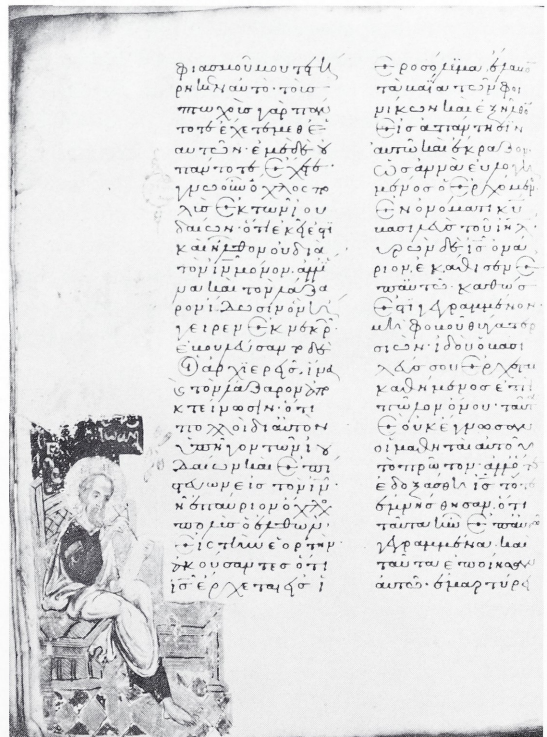 φιασμοῦ μου τετή
ρηκεν αὐτό· τοὺς
πτωχοὺς γὰρ πάν
τοτε ἔχετε μεθ' ἑ
αυτῶν· ἐμὲ δὲ οὐ
πάντοτε ἔχετε·
ἔγνω οὖν ὄχλος πο
λὺς ἐκ τῶν ἰου
δαίων· ὅτι ἐκεῖ ἐστι
καὶ ἦλθον οὐ διὰ
τὸν ιν μόνον· ἀλλ' ἵ
να καὶ τὸν λάζα
ρον ἴδωσιν ὃν ἤ
γειρεν ἐκ νεκρῶν·
ἐβουλεύσαντο δὲ
οἱ ἀρχιερεῖς, ἵνα
καὶ τὸν λάζαρον ἀπο
κτείνωσιν· ὅτι
πολλοὶ δι' αὐτὸν
ὑπῆγον τῶν ἰου
δαίων καὶ ἐπί
στευον εἰς τὸν ιν·
τῇ ἐπαύριον ὄχλος
πολὺς ὁ ἐλθὼν
εἰς τὴν ἑορτὴν
ἀκούσαντες ὅτι
ις ἔρχεται εἰς ἱ
εροσόλυμα, ἔλαβον
τὰ βαΐα τῶν φοι
νίκων καὶ ἐξῆλθον
εἰς ἀπάντησιν
αὐτῷ καὶ ἔκραζον·
ὡσαννὰ εὐλογη
μένος ὁ ἐρχόμενος
ἐν ὀνόματι κυ
βασιλεὺς τοῦ ιηλ·
εὑρὼν δὲ ὁ ις ὀνά
ριον, ἐκάθισεν ἐ
π' αὐτό· καθώς
ἐστι γεγραμμένον·
μὴ φοβοῦ θύγατερ
σιών· ἰδοὺ ὁ βασι
λεύς σου ἔρχεται
καθήμενος ἐπὶ
πῶλον ὄνου· ταῦτα
δὲ οὐκ ἔγνωσαν
οἱ μαθηταὶ αὐτοῦ
τὸ πρῶτον· ἀλλ' ὅτε
ἐδοξάσθη ις τότε
ἐμνήσθησαν ὅτι
ταῦτα ἦν ἐπ' αὐτῷ
γεγραμμένα καὶ
ταῦτα ἐποίησαν
αὐτῷ· ἐμαρτύρει